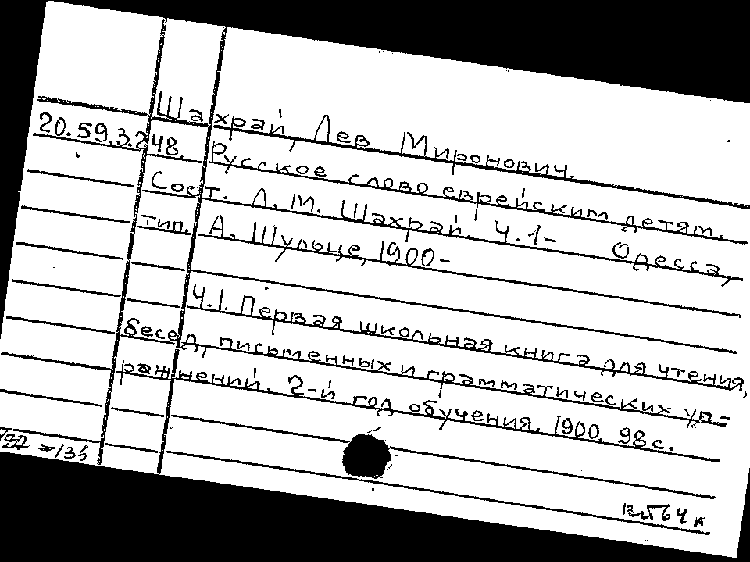 Шахрай, Лев Миронович.
20.59.3.248. Русское слово еврейским детям.
Сост. Л. М. Шахрай. Ч.1- Одесса,
тип. А. Шульце, 1900-
Ч.1. Первая школьная книга для чтения,
бесед, письменных и грамматических уп-
ражнений. 2-й год обучения. 1900. 98 с.